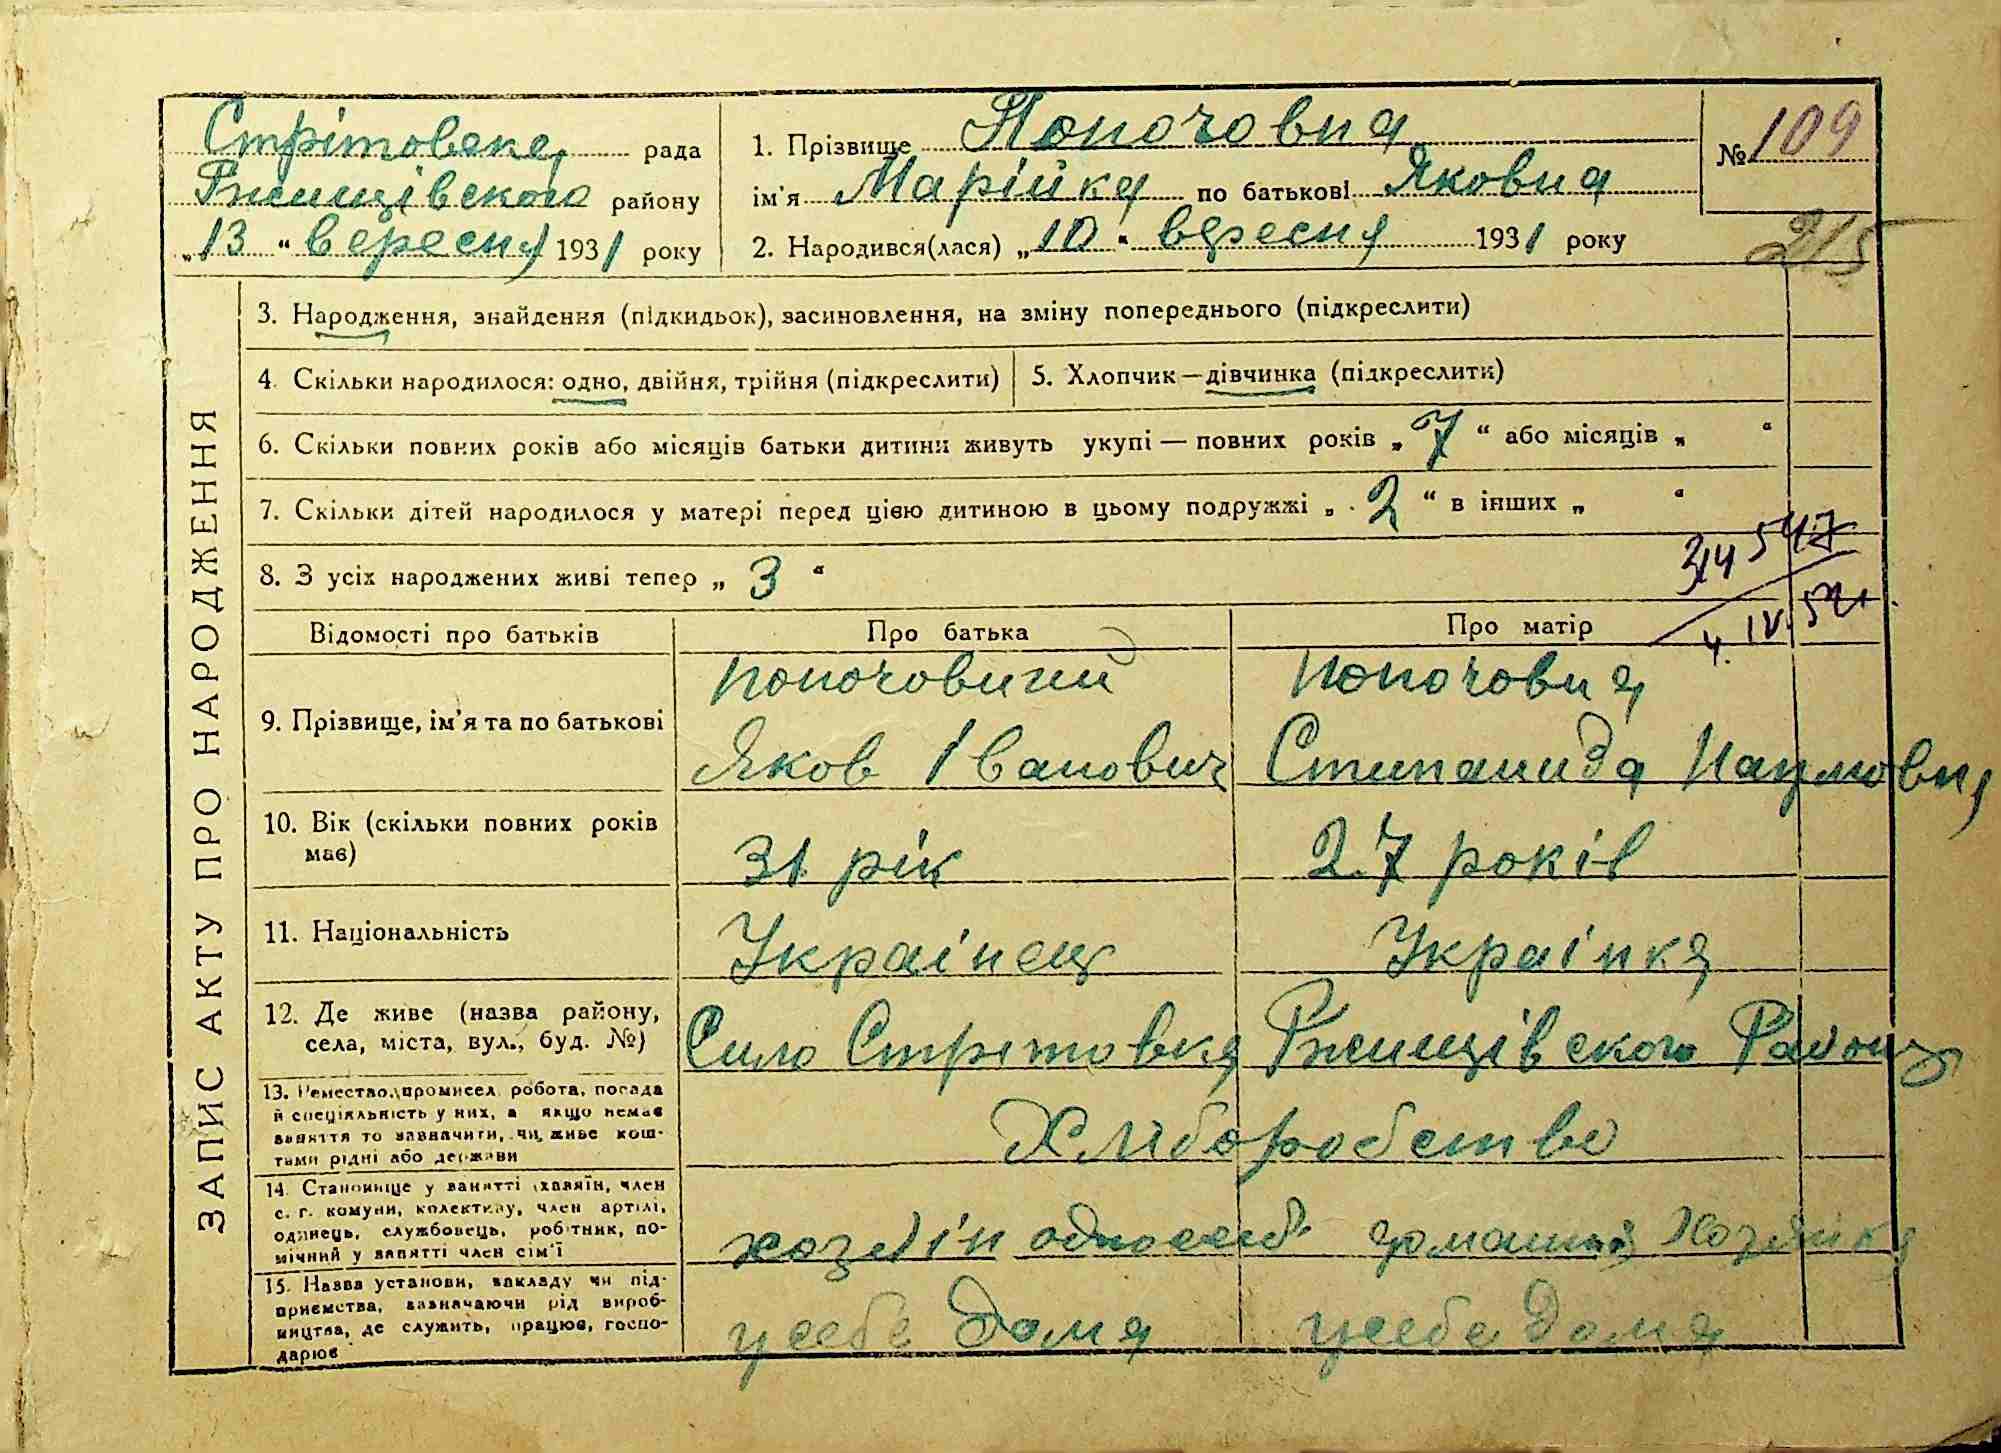 Стрітовска рада
Ржищівского району
„13“ вересня 1931 року
1. Прізвище Попочовна
ім'я Марійка по батькові Яковна
2. Народився(лася) „10“ вересня 1931 року
№ 109
215
ЗАПИС АКТУ ПРО НАРОДЖЕННЯ
3. Народження, знайдення (підкидьок), засиновлення, на зміну попереднього (підкреслити)
4. Скільки народилося: одно, двійня, трійня (підкреслити)
5. Хлопчик—дівчинка (підкреслити)
6. Скільки повних років або місяців батьки дитини живуть укупі — повних років „7“ або місяців „ “
7. Скільки дітей народилося у матері перед цією дитиною в цьому подружжі „2“ в інших „ “
8. З усіх народжених живі тепер „3“
Відомості про батьків
Про батька
Про матір
9. Прізвище, ім'я та по батькові
Попочовний
Яков Іванович
Попочовна
Степанида Наумовна
10. Вік (скільки повних років
має)
31 рік
27 років
11. Національність
Украінец
Украінка
12. Де живе (назва району,
села, міста, вул., буд. №)
Село Стретовка Ржищівского Району
13. Ремество, промисел, робота, посада
й спеціяльність у них, а якщо немає
заняття то зазначити, чи живе кош-
тами рідні або держави
Хліборобство
14. Становище у занятті (хазяїн, член
с. г. комуни, колективу, член артілі,
одинець, службовець, робітник, по-
мічний у занятті член сім'ї
хозяін одноосіб
домашня Хозяйка
15. Назва установи, закладу чи під-
приємства, зазначаючи рід вироб-
ництва, де служить, працює, госпо-
дарює
у себе дома
у себе дома